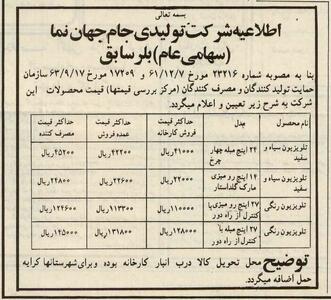 بسمه تعالی
اطلاعیه شرکت تولیدی جام جهان نما
(سهامی عام) بلر سابق
بنا به مصوبه شماره ۲۳۲۱۶ مورخ ۶۱/۱۲/۷ و ۱۷۲۰۹ مورخ ۶۳/۹/۱۷ سازمان
حمایت تولید کنندگان و مصرف کنندگان (مرکز بررسی قیمتها) قیمت محصولات این
شرکت به شرح زیر تعیین و اعلام میگردد.
نام محصول مدل حداکثر قیمت فروش کارخانه حداکثر قیمت عمده فروش حداکثر قیمت مصرف کننده
تلویزیون سیاه و سفید ۲۴ اینچ مبله چهار چرخ ۴۱۰۰۰ ریال ۴۲۲۰۰ ریال ۴۵۲۰۰ ریال
تلویزیون سیاه و سفید ۱۴ اینچ رو میزی مارک گلداستار ۲۲۰۰۰ ریال ۲۲۶۰۰ ریال ۲۴۸۰۰ ریال
تلویزیون رنگی ۲۷ اینچ رو میزی با کنترل از راه دور ۱۱۰۰۰۰ ریال ۱۱۳۳۰۰ ریال ۱۲۴۶۰۰ ریال
تلویزیون رنگی ۲۷ اینچ مبله با کنترل از راه دور ۱۲۸۰۰۰ ریال ۱۳۱۸۰۰ ریال ۱۴۵۰۰۰ ریال
توضیح محل تحویل کالا درب انبار کارخانه بوده و برای شهرستانها کرایه
حمل اضافه میگردد.